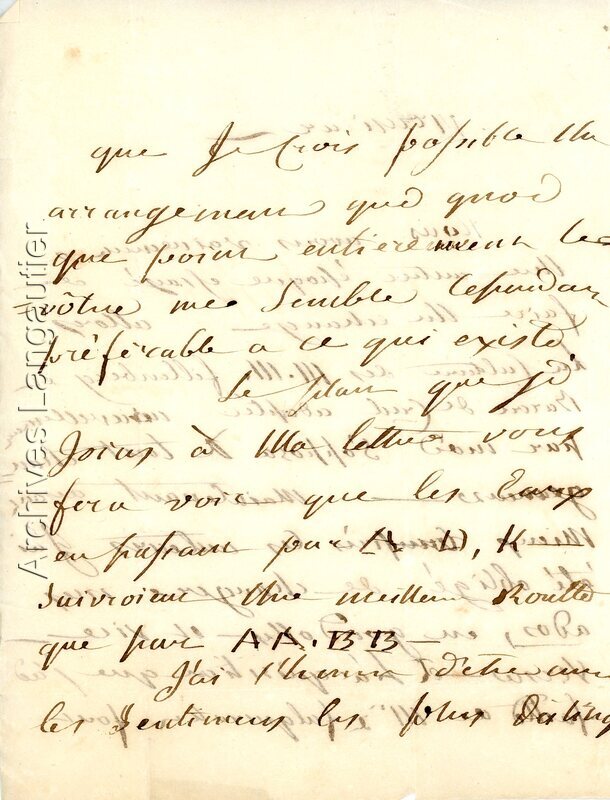 que Je Crois possible Un
arrangement que quoi
que point entierement le
vôtre me Semble Cependan
préférable a ce qui existe,
Le plan que je
Joins à Ma lettre vous
fera voir que les Eaux
en passant par A D, K
Suivroient Une meilleure Routte
que par AA. BB
J'ai l'honneur d'être avec
les Sentimens les plus Disting
Archives Langautier